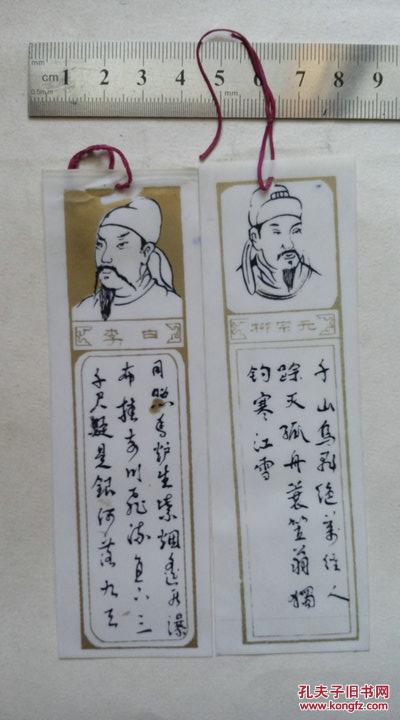 mm
cm 1 2 3 4 5 6 7 8 9
0.5mm
李白
日照香炉生紫烟遥看瀑
布挂前川飛流直下三
千尺疑是銀河落九天
柳宗元
千山鳥飛絶萬徑人
踪灭孤舟蓑笠翁獨
钓寒江雪
孔夫子旧书网
www.kongfz.com